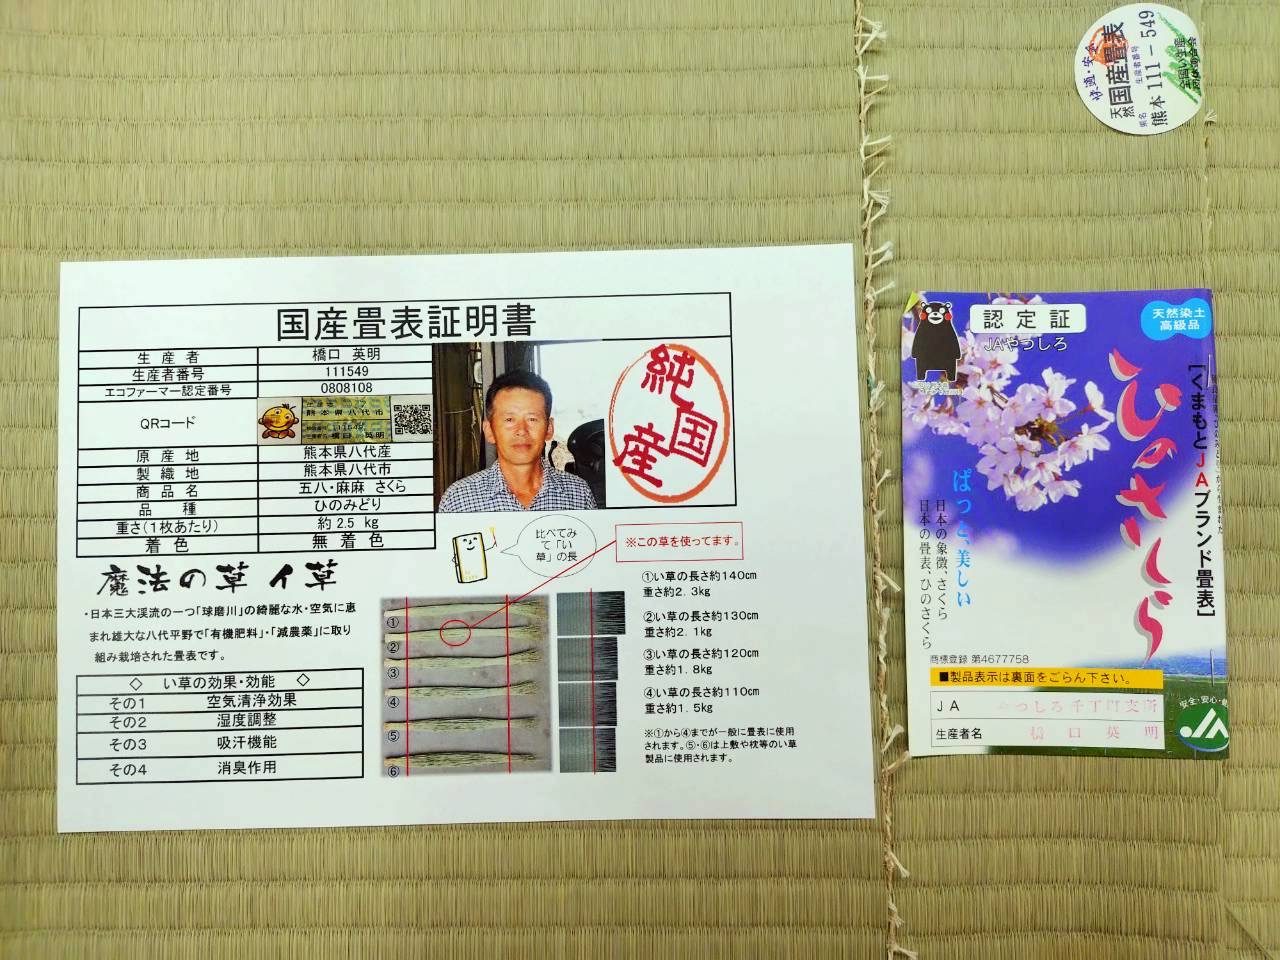 国産畳表証明書
生産者 橋口 英明
生産者番号 111549
エコファーマー認定番号 0808108
QRコード
熊本県八代市
橋口 英明
原産地 熊本県八代産
製織地 熊本県八代市
商品名 五八・麻麻 さくら
品種 ひのみどり
重さ(1枚あたり) 約2.5 kg
着色 無着色
純国産
魔法の草 イ草
・日本三大渓流の一つ「球磨川」の綺麗な水・空気に恵
まれ雄大な八代平野で「有機肥料」・「減農薬」に取り
組み栽培された畳表です。
◇ い草の効果・効能 ◇
その1 空気清浄効果
その2 湿度調整
その3 吸汗機能
その4 消臭作用
比べてみ
て「い
草」の長
※この草を使ってます。
①
②
③
④
⑤
⑥
①い草の長さ約140cm
重さ約2.3kg
②い草の長さ約130cm
重さ約2.1kg
③い草の長さ約120cm
重さ約1.8kg
④い草の長さ約110cm
重さ約1.5kg
※①から④までが一般に畳表に使用
されます。⑤・⑥は上敷や枕等のい草
製品に使用されます。
快適・安全
天然 国産畳表
生産者番号
県名 熊本 111-549
全国い生産
団体連合会
認定証
JAやつしろ
天然染土
高級品
ひのさくら
[くまもとJAブランド畳表]
ぱっと、美しい
日本の象徴、さくら
日本の畳表、ひのさくら
商標登録 第4677758
■製品表示は裏面をごらん下さい。
JA やつしろ千丁町支所
生産者名 橋口英明
安全・安心・
JA